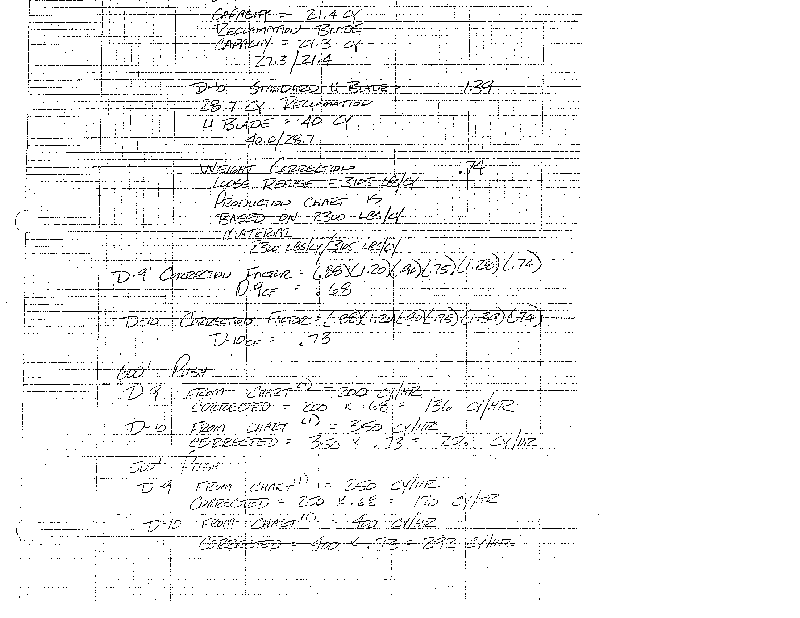 CAPACITY = 21.4 CY
RECLAMATION BLADE
CAPACITY = 27.3 CY
27.3/21.4
D-10 STANDARD U BLADE = 1.39
28.7 CY RECLAMATION
U BLADE = 40 CY
40.0/28.7
WEIGHT CORRECTION .74
LOOSE REFUSE = 3105 LBS/CY
PRODUCTION CHART IS
BASED ON 2300 LBS/CY
MATERIAL
2300 LBS/CY/3105 LBS/CY
D-9 CORRECTION FACTOR = (.88)(1.20)(.90)(.75)(1.28)(.74)
D-9CF = .68
D-10 CORRECTION FACTOR = (.88)(1.20)(.90)(.75)(1.39)(.74)
D-10CF = .73
600' PUSH
D-9 FROM CHART(1) = 200 CY/HR
CORRECTED = 200 X .68 = 136 CY/HR
D-10 FROM CHART (1) = 350 CY/HR
CORRECTED = 350 X .73 = CY/HR
500' PUSH
D-9 FROM CHART(1) = 250 CY/HR
CORRECTED = 250 X .68 = 170 CY/HR
D-10 FROM CHART(1) = 400 CY/HR
CORRECTED = 400 X .73 = 292 CY/HR